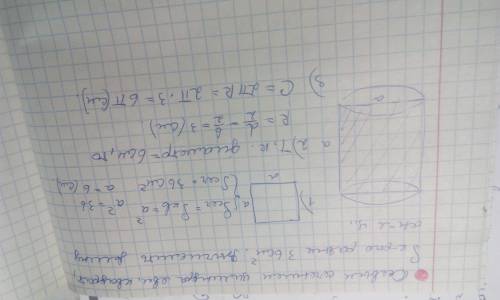 Осевым сечением цилиндра явл. квадрат,
S его равна 36 см². Вычислить длину
окр-
1) a
S сеч = S кв = a²
S сеч = 36 см²
a² = 36
a = 6 (см)
a
2) Т.к. диаметр = 6 см, то
R = d/2 = 6/2 = 3 (см)
3)
C = 2πR = 2π · 3 = 6π (см)